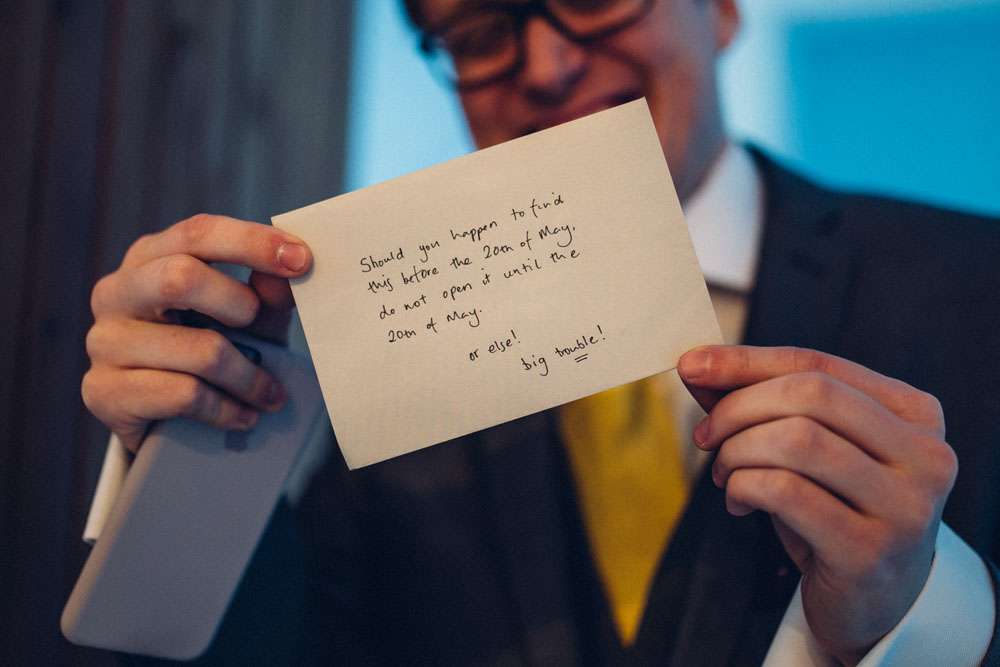 Should you happen to find
this before the 20th of May,
do not open it until the
20th of May.
or else!
big trouble!